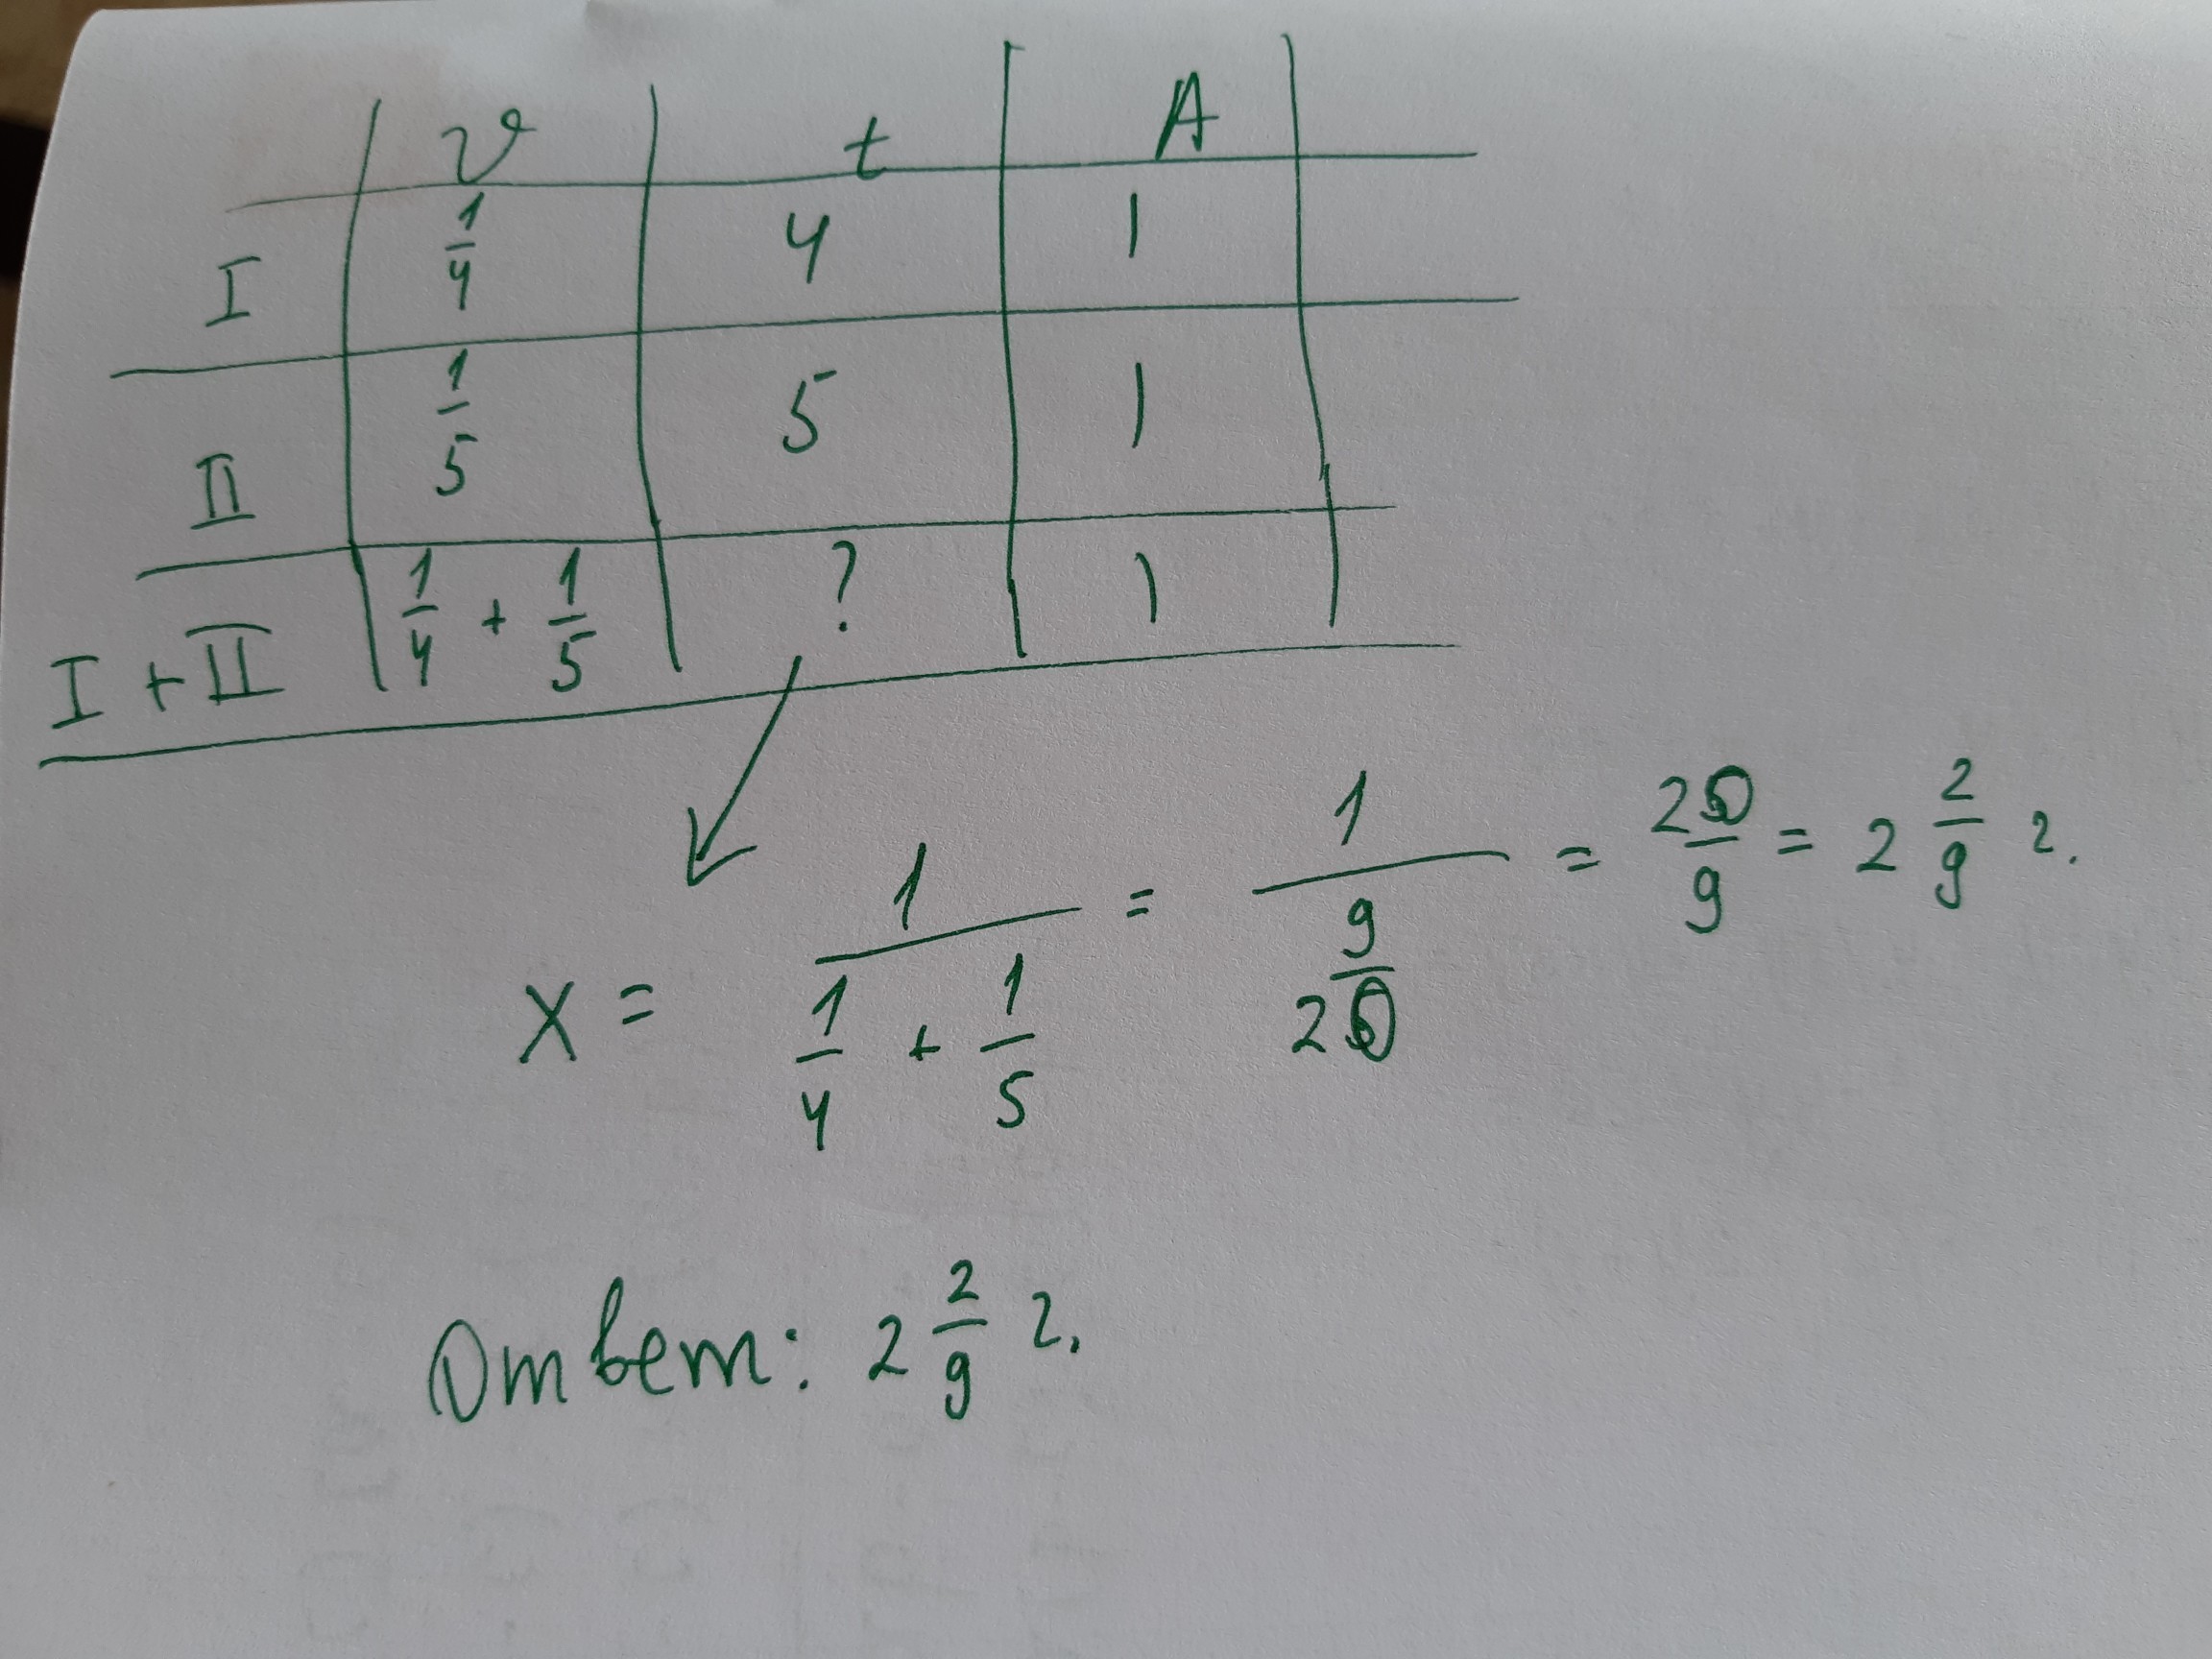 v t A
I 1/4 4 1
II 1/5 5 1
I + II 1/4 + 1/5 ? 1
x = 1/(1/4 + 1/5) = 1/(9/20) = 20/9 = 2 2/9 г.
Ответ: 2 2/9 г.